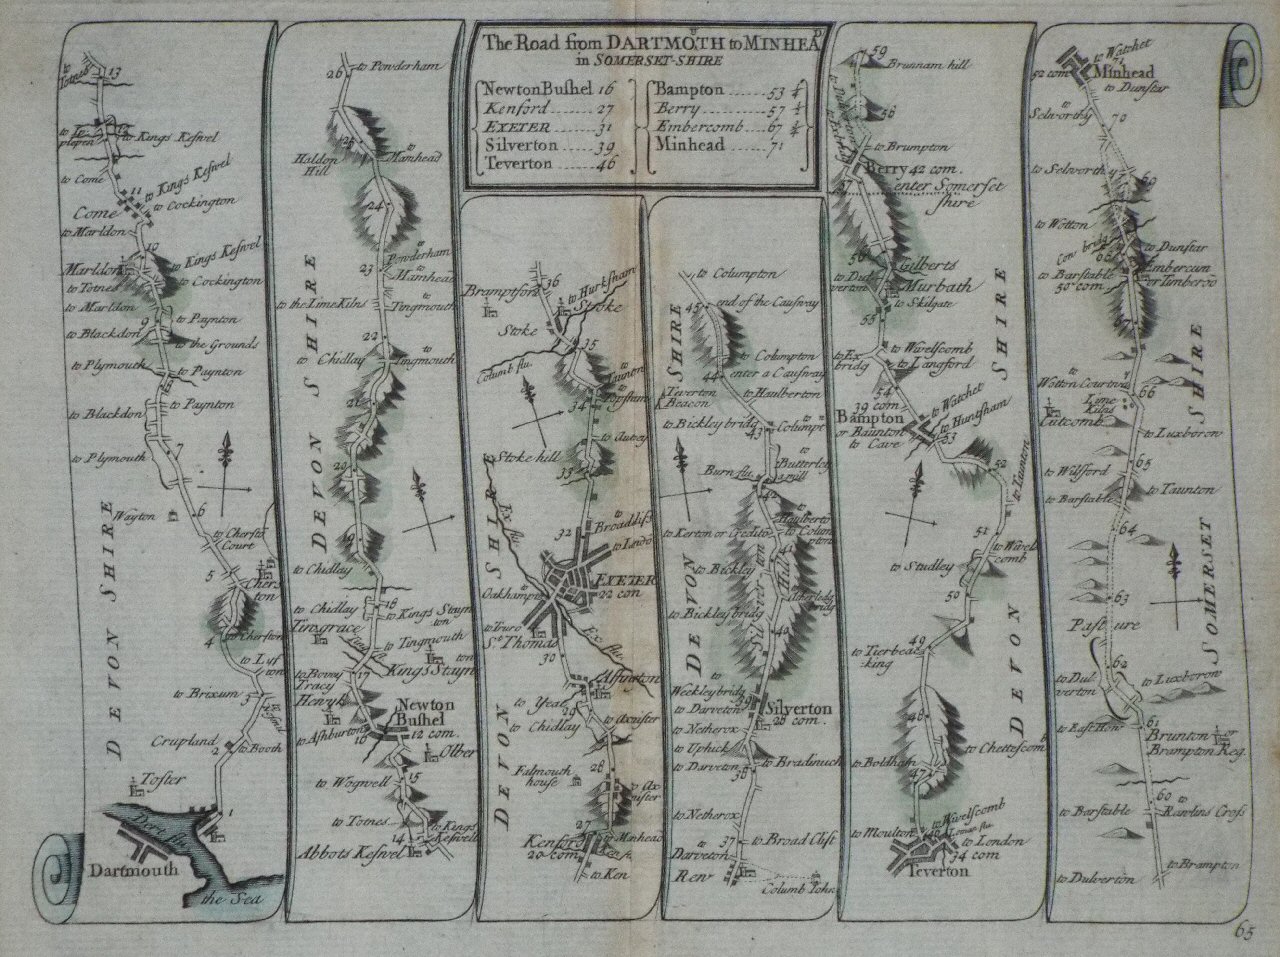 The Road from DARTMOTH to MINHEAD
in SOMERSET-SHIRE
Newton Bushel 16
Kenford 27
EXETER 31
Silverton 39
Teverton 46
Bampton 53 ¼
Berry 57 ½
Embercomb 67 ¾
Minhead 71
to Totnes
13
12
to Kings Keswel
to Come
11
to Kings Keswel
to Cockington
Come
to Marldon
10
to Kings Keswel
Marldon
to Totnes
to Cockington
to Marldon
9
to Paynton
to Blackdon
to the Grounds
to Plymouth
to Paynton
to Blackdon
to Paynton
7
to Plymouth
Wayton
6
to Chersto
Court
5
Chers
ton
4
to Cherston
to Lyf
ton
to Brixum
3
Crupland
2
to Booth
Tofter
1
Dert flu
Dartmouth
the Sea
DEVON SHIRE
26
to Powderham
25
Haldon
Hill
to Mamhead
24
to Powderham
23
to Mamhead
to the Lime Kilns
to Tingmouth
22
to Chidlay
to Tingmouth
21
20
19
to Chidlay
to Chidlay
18
to Kings Stayn
ton
Tingrace
to Tingmouth
to Bovey
Tracy
17
Kings Stayn
ton
Henyk
Newton
Bushel
12 com.
to Ashburton
16
Olber
to Wogwell
15
to Totnes
14
to Kings
Keswell
Abbots Keswel
DEVON SHIRE
36
Bramptford
to Hurksham
Stoke
Stoke
35
Columb flu.
to Taunton
to Topsham
34
to Autrey
Stoke hill
33
Ex flu
32
to Broadlist
EXETER
22 com
to Oakhampt
to Truro
St. Thomas
30
Ex flu
Alfinton
to Yeal
29
to Axmister
to Chidlay
28
Falmouth
house
to Ax
mister
27
to Mimhead
Kenford
20 com.
to Ken
DEVON SHIRE
to Columpton
45
end of the Causway
to Columpton
44
enter a Causway
Teverton
Beacon
to Haulberton
to Bickley bridg
43
to Columpt
to Butterley
a mill
Burn flu.
42
to Kerton or Credito
to Haulberto
to Colum
pton
to Bickley
to Bickley bridg
Silverton Hill
40
to Weekley bridg
39
to Darveton
Silverton
28 com.
to Netherox
to Uphick
to Bradinuch
to Darveton
38
to Netherox
37
to Broad Clist
to Darveton
Rew
Columb John
DEVON SHIRE
59
Brunnam hill
56
to Brumpton
Berry 42 com.
57
enter Somerset
shire
56
to Dul
verton
Gilberts
Murbath
to Skilgate
55
to Ex
bridg
to Wivelscomb
to Langford
54
39 com
Bampton
or Baunton
to Cave
to Watchet
to Huntsham
53
52
to Taunton
51
to Wivels
comb
to Studley
50
49
to Tierbea
king
48
to Chettescomb
to Boldham
47
to Wivelscomb
to Moulton
Loman flu
to London
34 com
Teverton
DEVON SHIRE
to Watchet
71
52 com
Minhead
to Dunstar
to Selworthy
70
to Selworthy
69
to Wotton
Cow bridg
68
to Dunstar
to Barstable
50 com.
Embercum
or Timberoo
67
to Wotton Courtny
66
Lime
Kilns
Cutcomb
to Luxboron
65
to Wilsford
to Barstable
to Taunton
64
63
Pasture
62
to Dul
verton
to Luxborow
to East Hon
61
Brunton or
Brampton Reg.
60
to Barstable
to Rawlins Cross
to Brampton
to Dulverton
SOMERSET SHIRE
65